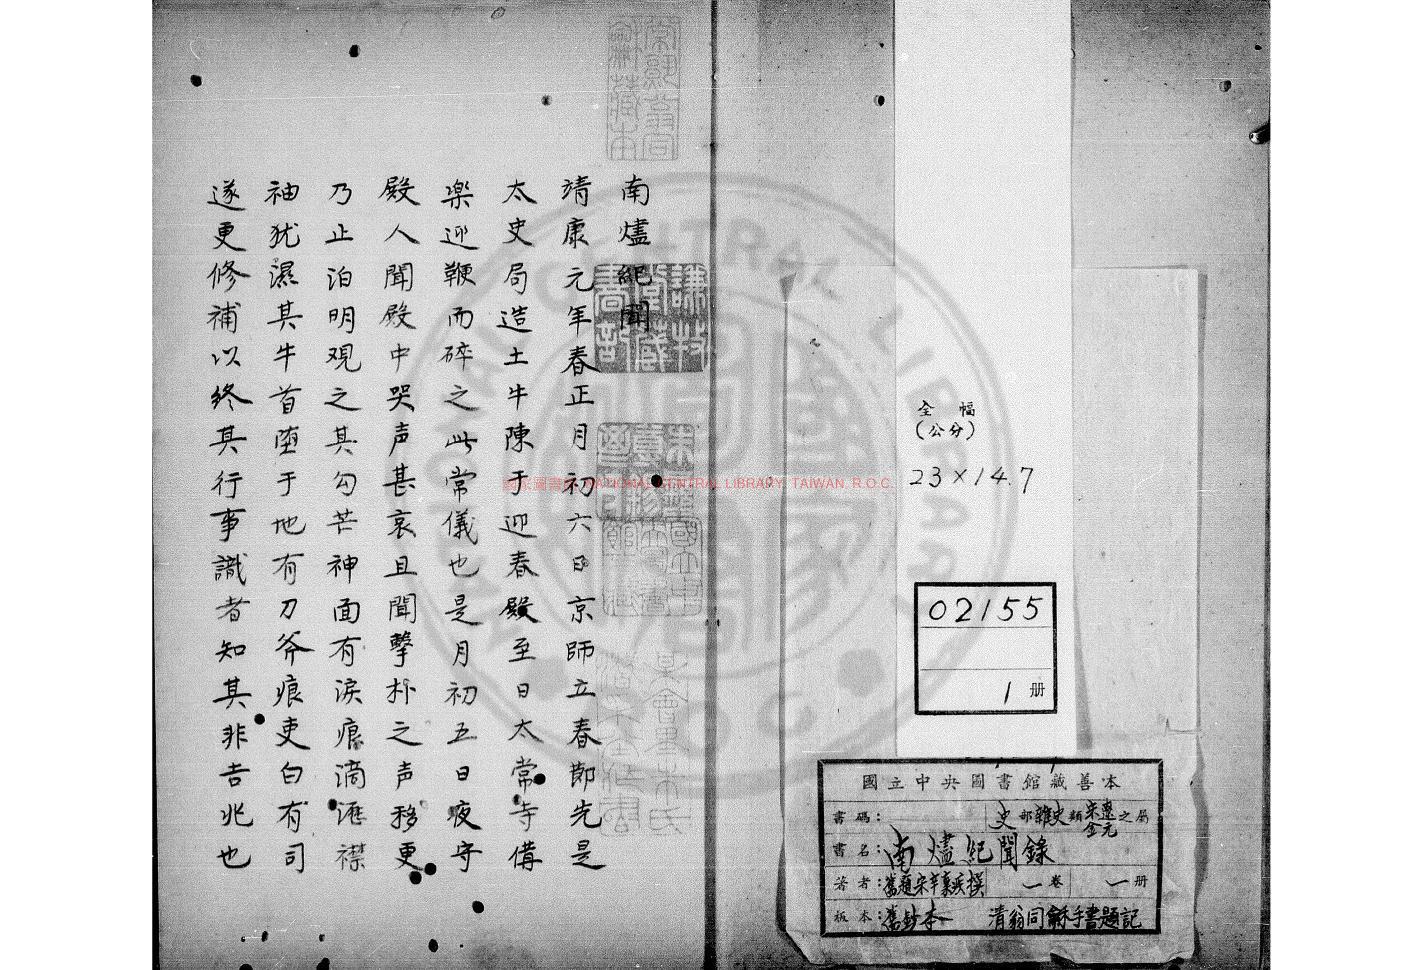 南燼紀聞
靖康元年春正月初六日京師立春節先是
太史局造土牛陳于迎春殿至日太常寺備
楽迎鞭而碎之此常儀也是月初五日夜守
殿人聞殿中哭声甚哀且聞擊朴之声移更
乃止泊明观之其勾芒神面有淚痕滴瀝襟
袖犹濕其牛首堕于地有刀斧痕吏白有司
遂更修補以終其行事識者知其非吉兆也
全幅
(公分)
23×14.7
02155
1册
國立中央圖書館藏善本
書碼: 史部雜史類宋遼金元之屬
書名:南燼紀聞錄
著者:舊題宋辛棄疾撰 一卷 一册
板本:舊鈔本 清翁同龢手書題記
國家圖書館 NATIONAL CENTRAL LIBRARY, TAIWAN, R.O.C.